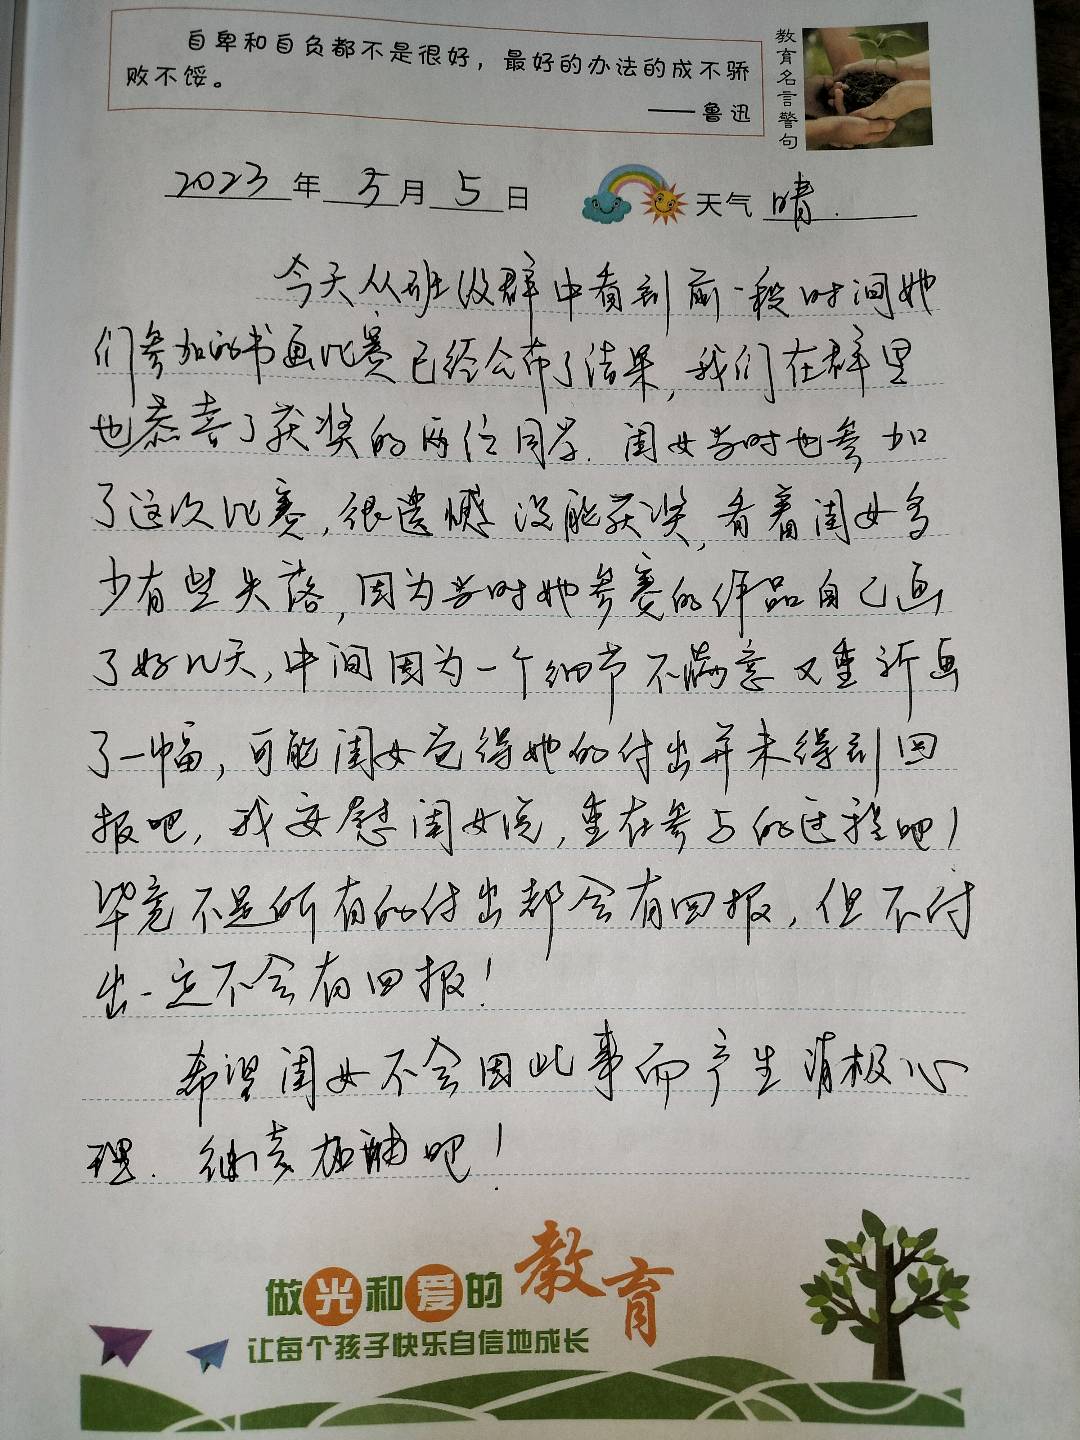 自卑和自负都不是很好，最好的办法的成不骄
败不馁。
——鲁迅
教育名言警句
2023年 5月 5日 天气 晴.
今天从班级群中看到前一段时间她
们参加的书画比赛已经公布了结果，我们在群里
也恭喜了获奖的两位同学.闺女当时也参加
了这次比赛，很遗憾没能获奖，看着闺女多
少有些失落，因为当时她参赛的作品自己画
了好几天，中间因为一个细节不满意又重新画
了一幅，可能闺女觉得她的付出并未得到回
报吧，我安慰闺女说，重在参与的过程吧！
毕竟不是所有的付出都会有回报，但不付
出一定不会有回报！
希望闺女不会因此事而产生消极心
理.继续加油吧！
做光和爱的教育
让每个孩子快乐自信地成长